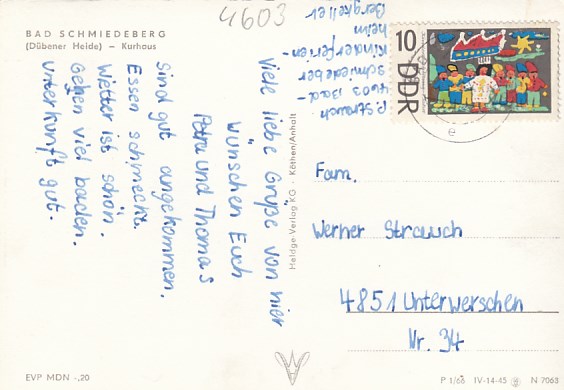 4603
BAD SCHMIEDEBERG
(Dübener Heide) – Kurhaus
Viele liebe Grüße von hier
wünschen Euch
Petra und Thomas
Sind gut angekommen.
Essen schmeckt.
Wetter ist schön.
Gehen viel baden.
Unterkunft gut.
P. Strauch
4603 Bad-
Schmiedeber
Kinderferien-
heim
Bergkeller
10
DDR
e
Heldge Verlag KG · Köthen/Anhalt
Fam.
Werner Strauch
4851 Unterwerschen
Nr. 34
EVP MDN -,20
P 1/66 IV-14-45 N 7063